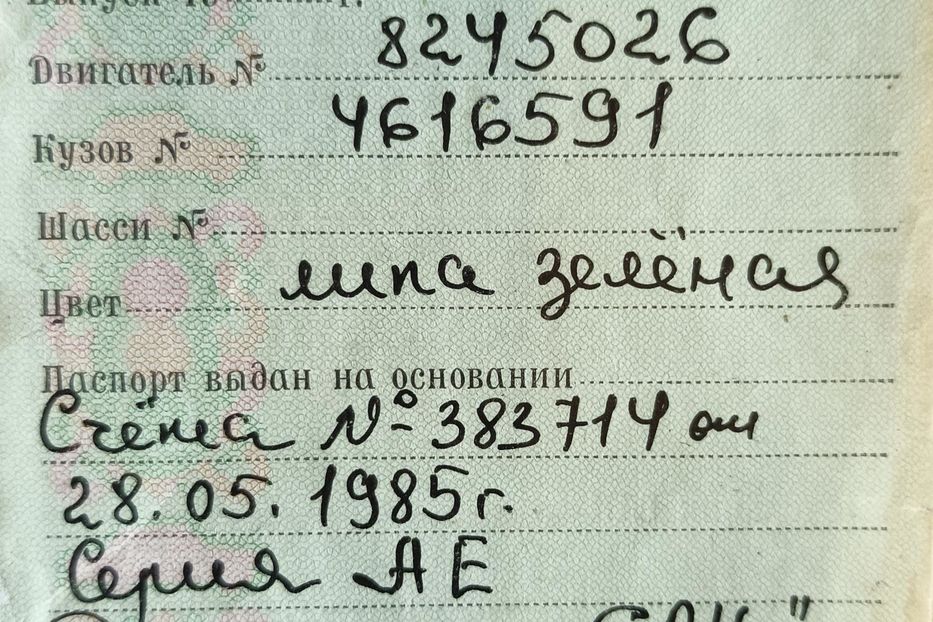 Двигатель № 8245026
Кузов № 4616591
Шасси №
Цвет липа зелёная
Паспорт выдан на основании
Счёта № 383714 от
28.05.1985г.
Серия АЕ